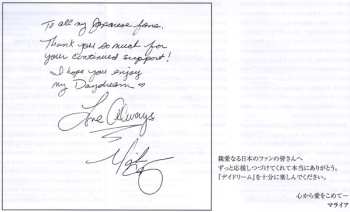 To all my Japanese fans,
Thank you so much for
your continued support!
I hope you enjoy
my Daydream
Love Always
親愛なる日本のファンの皆さんへ
ずっと応援しつづけてくれて本当にありがとう。
『デイドリーム』を十分に楽しんでください。
心から愛をこめて—
マライア